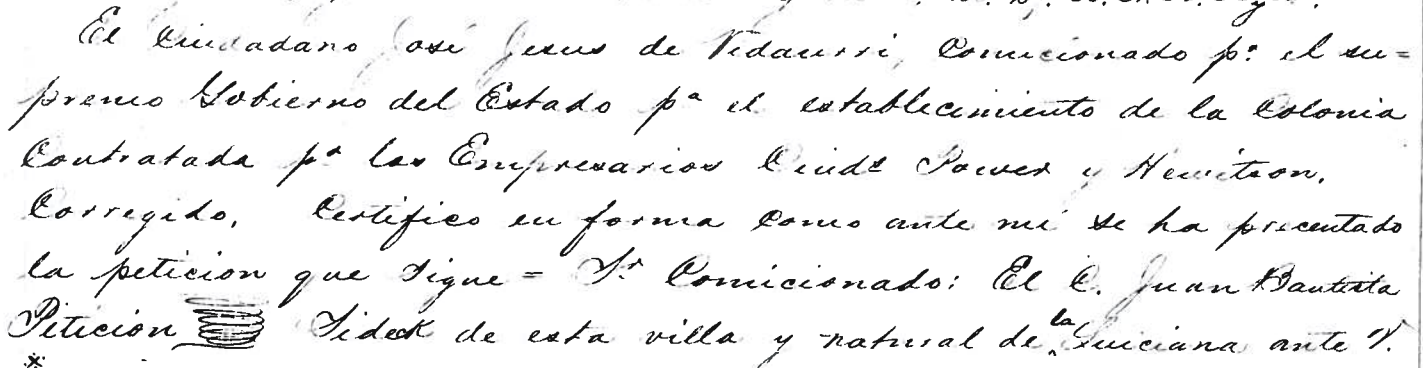 El Ciudadano José Jesus de Vidaurri, Comicionado pr. el su=
premo Gobierno del Estado pa el establecimiento de la Colonia
Contratada pa los Empresarios Ciuds Power y Hewitson.
Corregido, Certifico en forma como ante mi se ha precentado
la peticion que sigue = Sr. Comicionado: El C. Juan Bautista
Peticion Sideck de esta villa y natural de la Luiciana ante V.